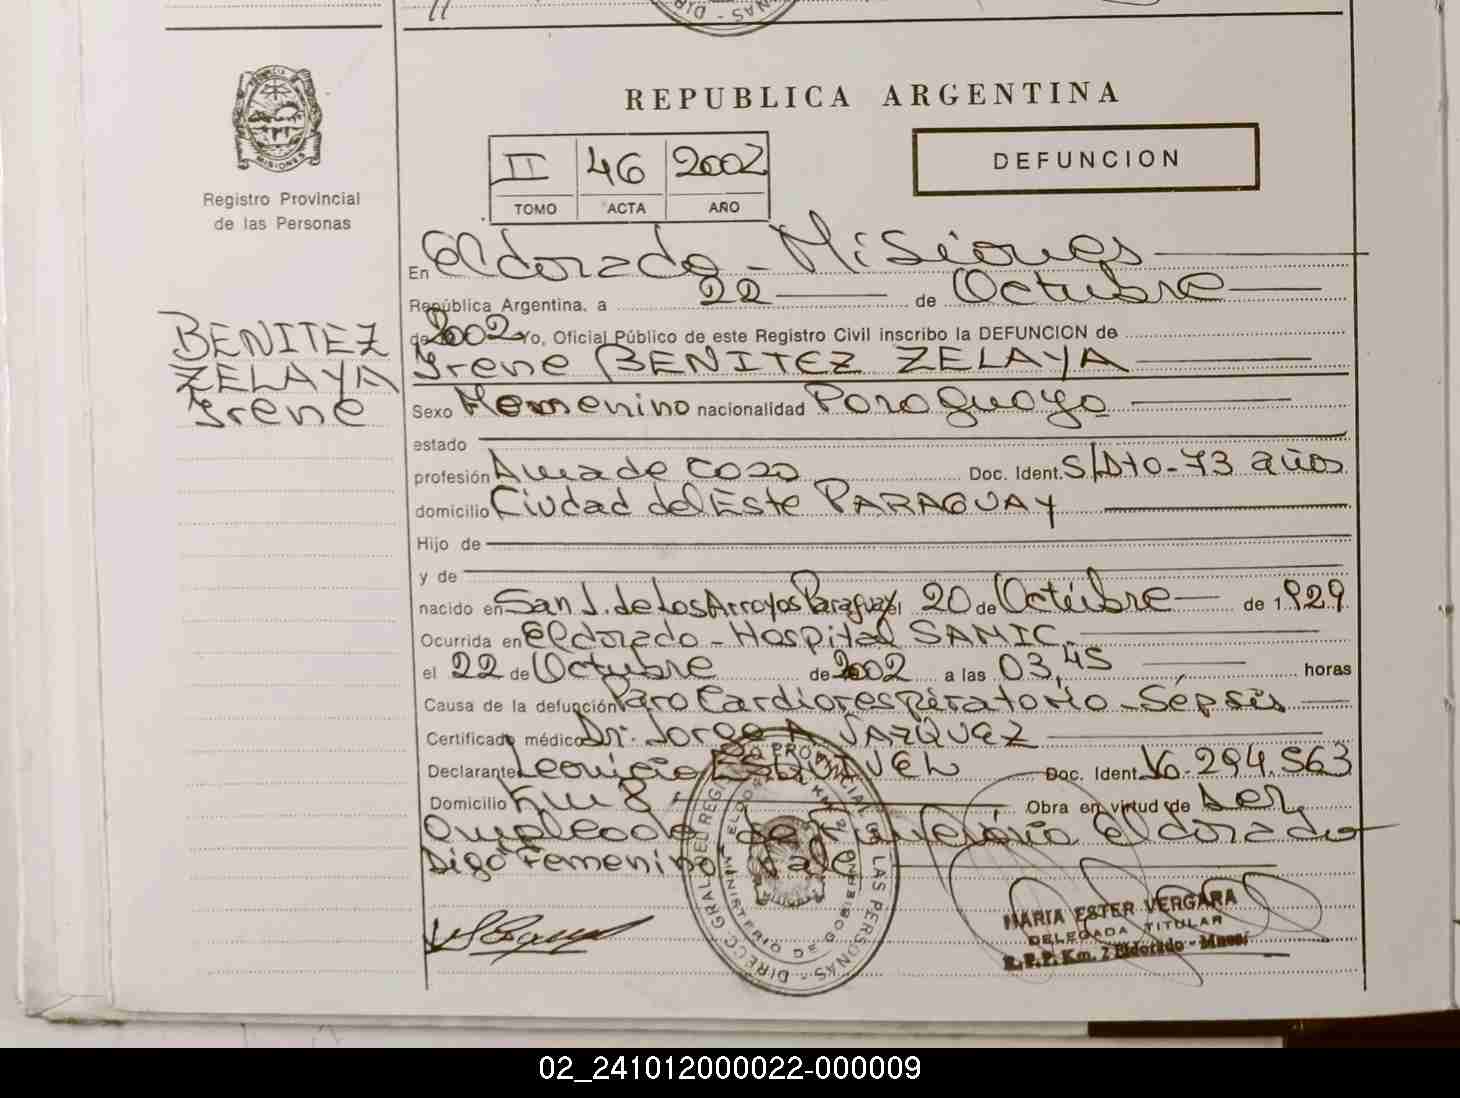 REPUBLICA ARGENTINA
DEFUNCION
II 46 2002
TOMO ACTA AÑO
MISIONES
Registro Provincial
de las Personas
BENITEZ
ZELAYA
Irene
En Eldorado - Misiones
República Argentina, a 22 de Octubre
de 2002 Yo, Oficial Público de este Registro Civil inscribo la DEFUNCION de
Irene BENITEZ ZELAYA
Sexo nacionalidad Paraguaya
estado
profesión Ama de casa Doc. Ident. S/Dto-73 años
domicilio Ciudad del Este PARAGUAY
Hijo de
y de
nacido en San J. de Los Arroyos Paraguay el 20 de Octubre de 1.929
Ocurrida en Eldorado - Hospital SAMIC.
el 22 de Octubre de 2002 a las 03,45 horas
Causa de la defunción Paro Cardiorespiratorio - Sépsis
Certificado médico Dr. Jorge A. VAZQUEZ
Declarante ESQUIVEL Doc. Ident. 16.294.563
Domicilio Km 8 Obra en virtud de ser
empleado de Funeraria Eldorado
Digo Femenino Vale
DIRECC. GRAL. DEL REGISTRO PROVINCIAL DE LAS PERSONAS
MINISTERIO DE GOBIERNO
MARIA ESTER VERGARA
DELEGADA TITULAR
R.P.P. Km. 2 Eldorado - Mnes.
02_241012000022-000009